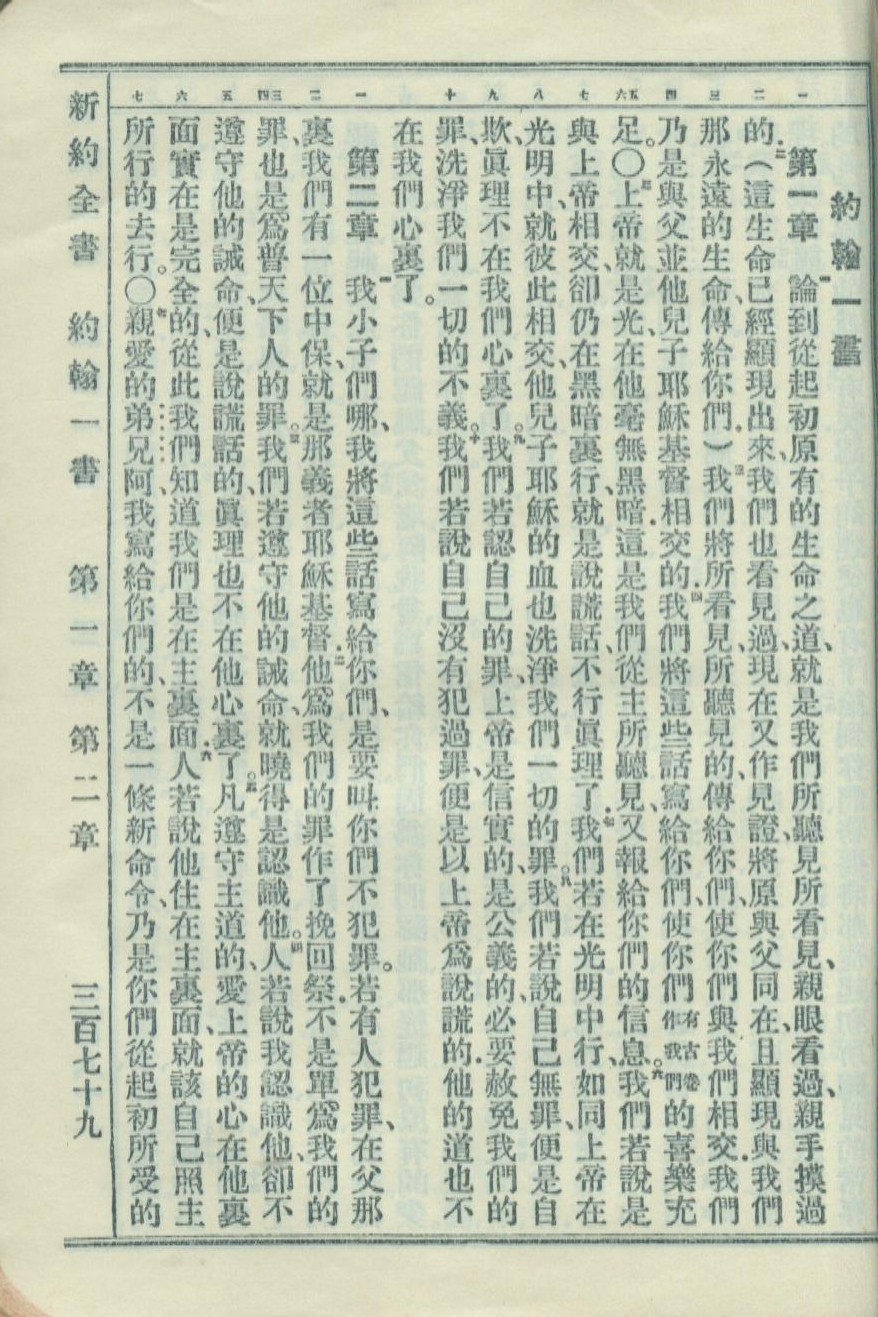 約翰一書
一 二 三 四 五六 七 八 九 十 一 二 三四 五 六 七
第一章 一論到從起初原有的生命之道、就是我們所聽見所看見、親眼看過、親手摸過
的．二（這生命已經顯現出來、我們也看見過、現在又作見證、將原與父同在、且顯現與我們
那永遠的生命、傳給你們．）三我們將所看見、所聽見的、傳給你們、使你們與我們相交．我們
乃是與父並他兒子耶穌基督相交的．四我們將這些話寫給你們、使你們有古卷作我們的喜樂充
足。〇五上帝就是光、在他毫無黑暗．這是我們從主所聽見、又報給你們的信息。六我們若說是
與上帝相交、卻仍在黑暗裏行、就是說謊話、不行眞理了．七我們若在光明中行、如同上帝在
光明中、就彼此相交、他兒子耶穌的血也洗淨我們一切的罪。八我們若說自己無罪、便是自
欺、眞理不在我們心裏了。九我們若認自己的罪、上帝是信實的、是公義的、必要赦免我們的
罪、洗淨我們一切的不義。十我們若說自己沒有犯過罪、便是以上帝爲說謊的．他的道也不
在我們心裏了。
第二章 一我小子們哪、我將這些話寫給你們、是要叫你們不犯罪。若有人犯罪、在父那
裏我們有一位中保、就是那義者耶穌基督．二他爲我們的罪作了挽回祭．不是單爲我們的
罪、也是爲普天下人的罪。三我們若遵守他的誡命、就曉得是認識他。四人若說我認識他、卻不
遵守他的誡命、便是說謊話的、眞理也不在他心裏了。五凡遵守主道的、愛上帝的心在他裏
面實在是完全的、從此我們知道我們是在主裏面．六人若說他住在主裏面、就該自己照主
所行的去行。〇七親愛的弟兄阿、我寫給你們的、不是一條新命令、乃是你們從起初所受的
新約全書 約翰一書 第一章 第二章 三百七十九